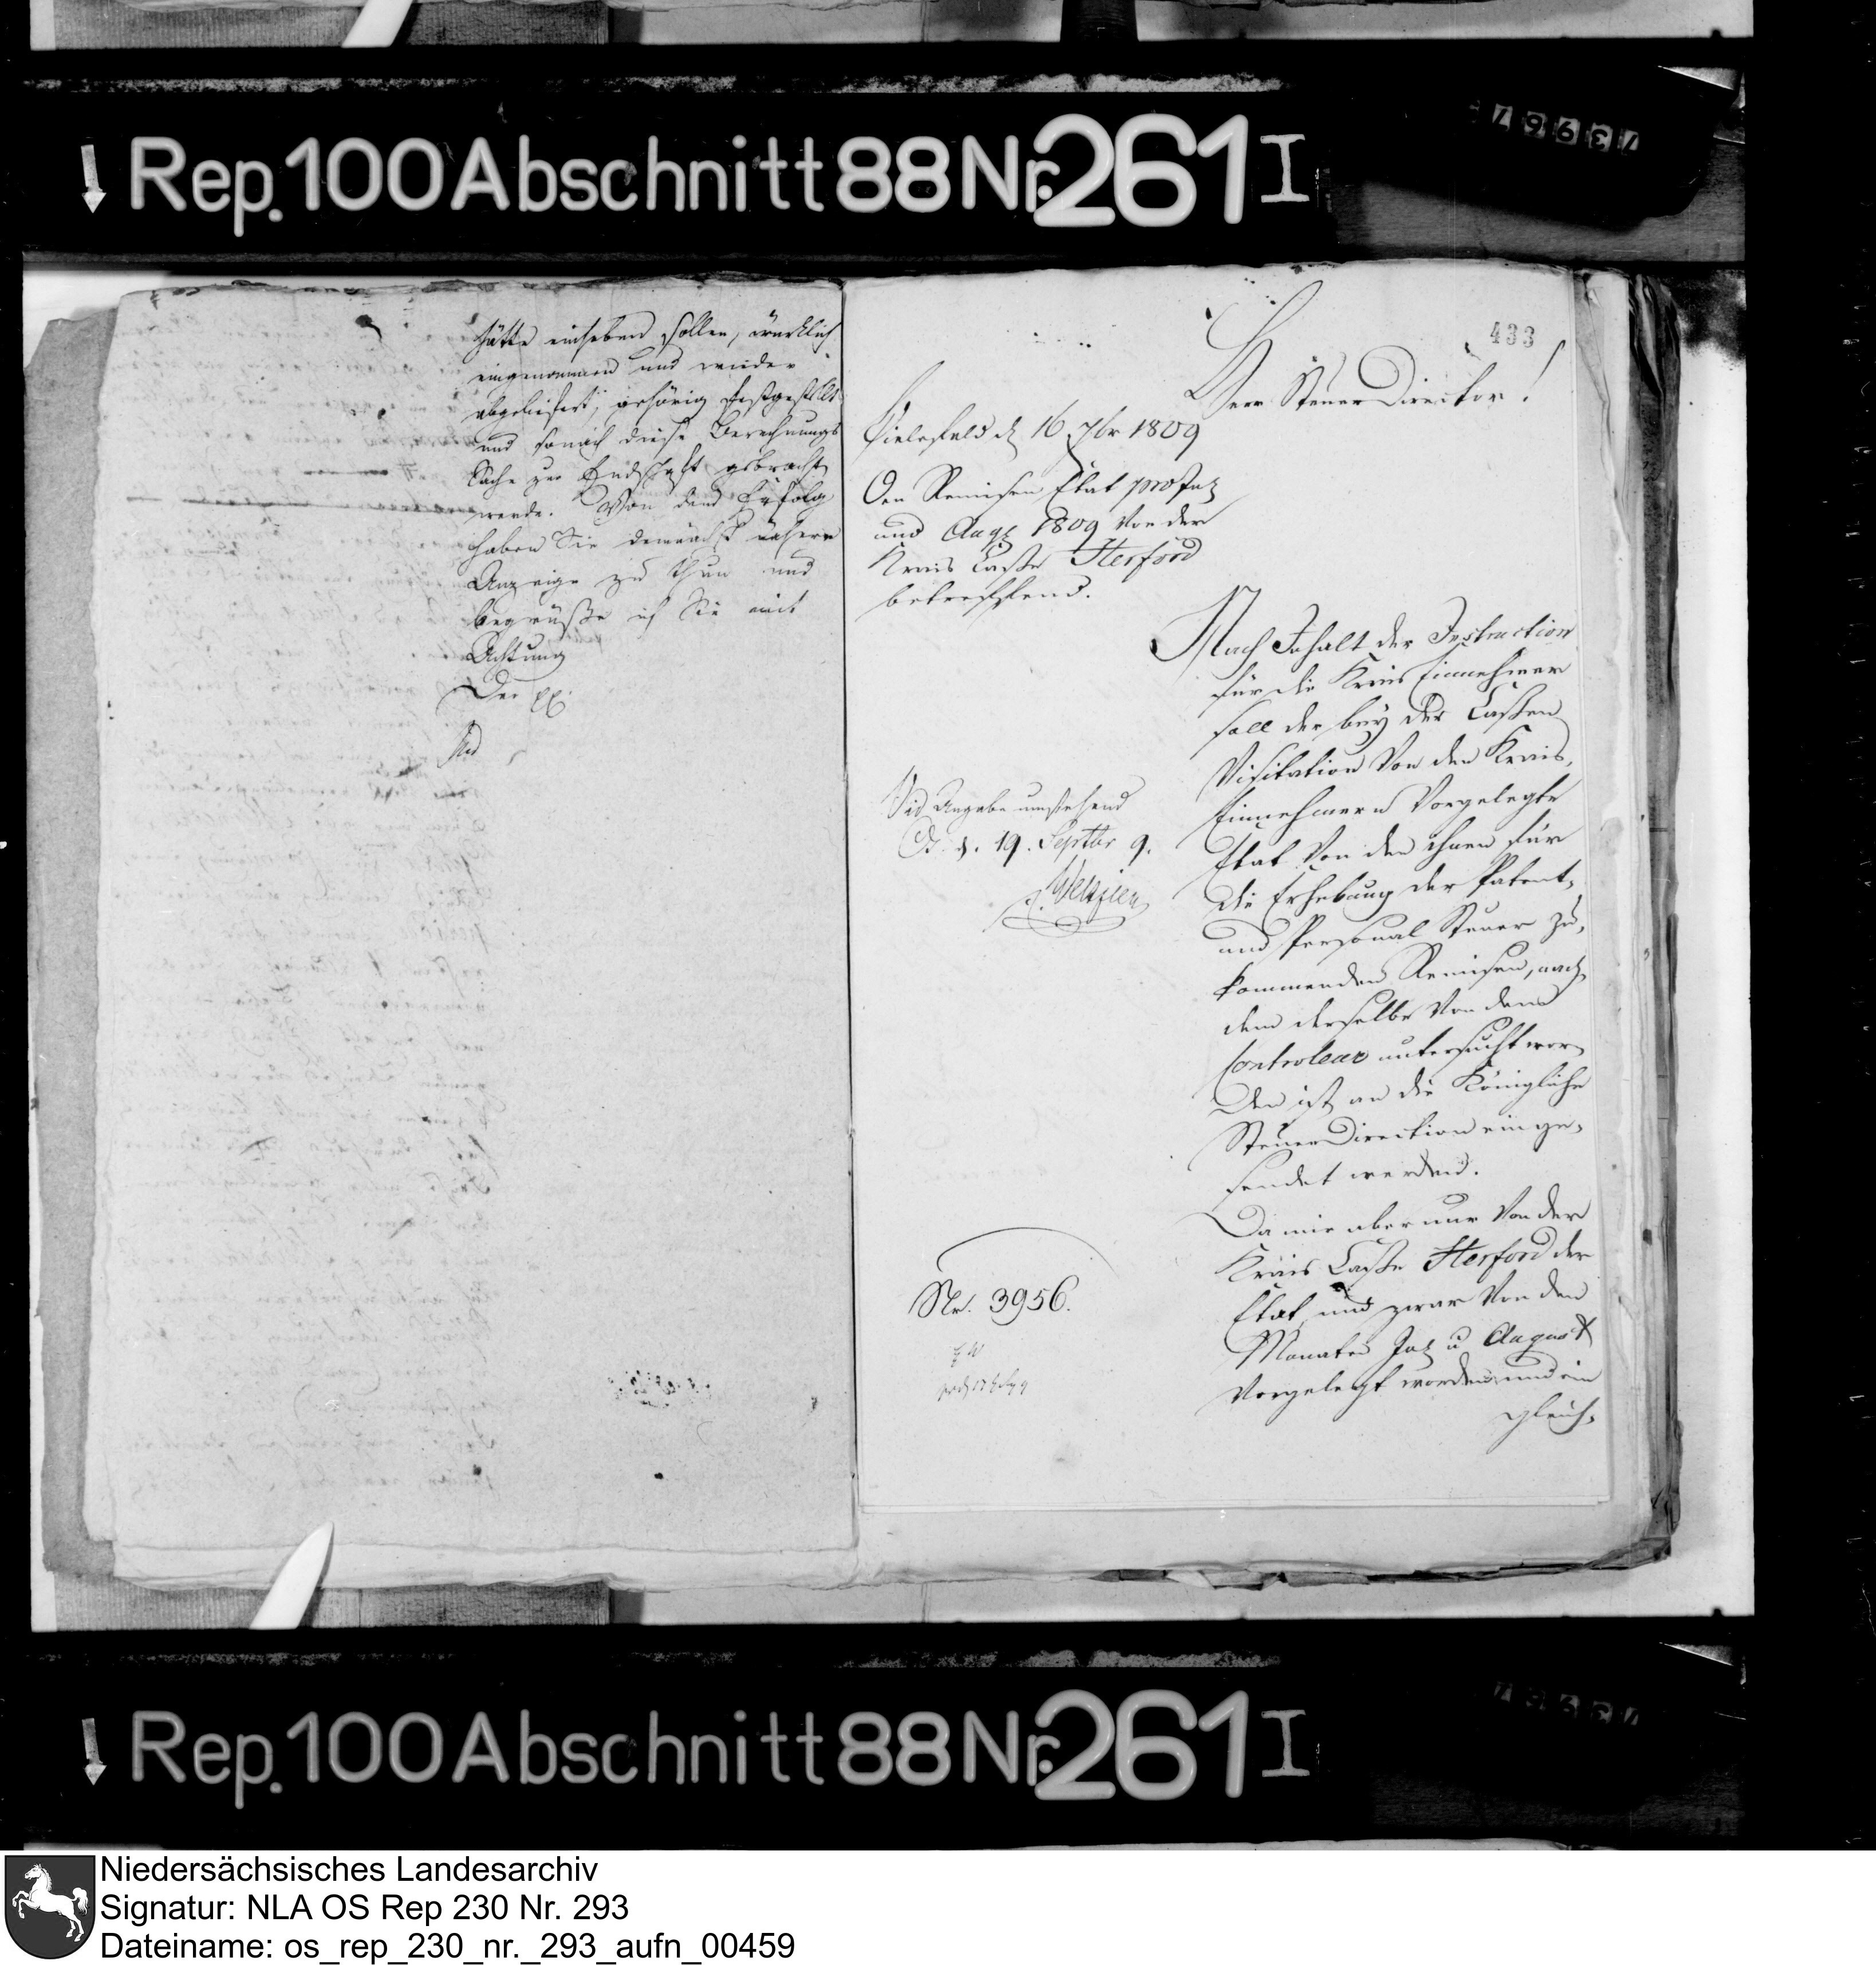 ↓ Rep. 100 Abschnitt 88 Nr. 261 I
hätte einheben sollen, würklich
eingenommen und wieder
abgeliefert, gehörig festgestellt
und sonach diese Berechnungs
Sache zur Endschaft gebracht
werde. Von dem Erfolg
haben Sie demnächst nähere
Anzeige zu thun und
begrüße ich Sie mit
Achtung
Der
433
Herr Steuer Director!
Bielefeld d 16 7br 1809
Den Remisen Etat pro Jul
und Aug 1809 von der
Kreis Casse Herford
betreffend.
Nach Inhalt der Instruction
für die Kreis Einnehmer
soll der bey der Cassen
Visitation von den Kreis,
Einnehmern vorgelegte
Etat von den ihnen für
die Erhebung der Patent,
und Personal Steuer zu,
kommenden Remisen, nach
dem derselbe von dem
Controleur untersucht wor
den ist, an die Königliche
Steuer Direction einge,
sendet werden.
Da mir aber nur von der
Kreis Casse Herford der
Etat und zwar von den
Monaten Jul u August
vorgelegt worden und ein
gleich,
Vid. Angabe umstehend
O. d. 19. Septbr 9.
Nr. 3956.
↓ Rep. 100 Abschnitt 88 Nr. 261 I
Niedersächsisches Landesarchiv
Signatur: NLA OS Rep 230 Nr. 293
Dateiname: os_rep_230_nr._293_aufn_00459